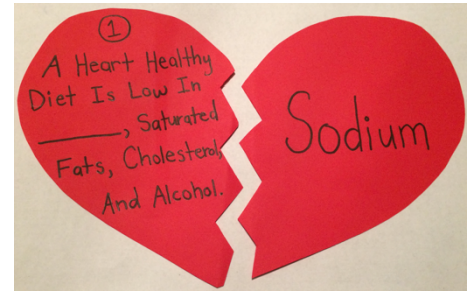 1
A Heart Healthy
Diet Is Low In
________, Saturated
Fats, Cholesterol,
And Alcohol.
Sodium